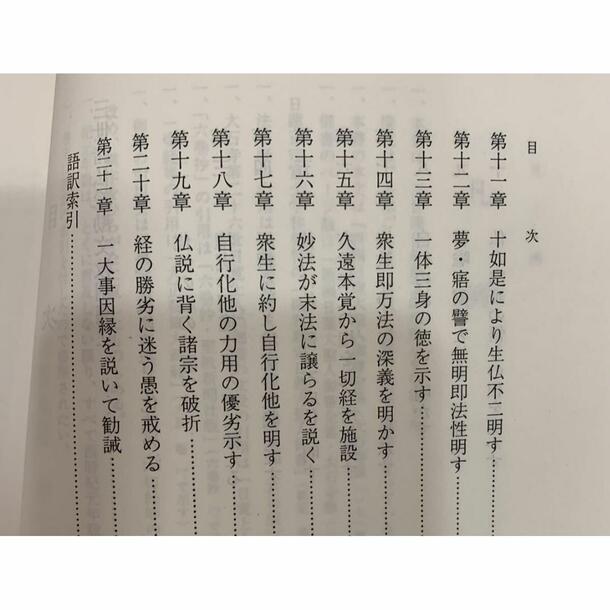 目次
第十一章 十如是により生仏不二明す…………
第十二章 夢・寤の譬で無明即法性明す…………
第十三章 一体三身の徳を示す…………
第十四章 衆生即万法の深義を明かす…………
第十五章 久遠本覚から一切経を施設…………
第十六章 妙法が末法に譲らるを説く…………
第十七章 衆生に約し自行化他を明す…………
第十八章 自行化他の力用の優劣示す…………
第十九章 仏説に背く諸宗を破折…………
第二十章 経の勝劣に迷う愚を戒める…………
第二十一章 一大事因縁を説いて勧誡…………
語訳索引…………